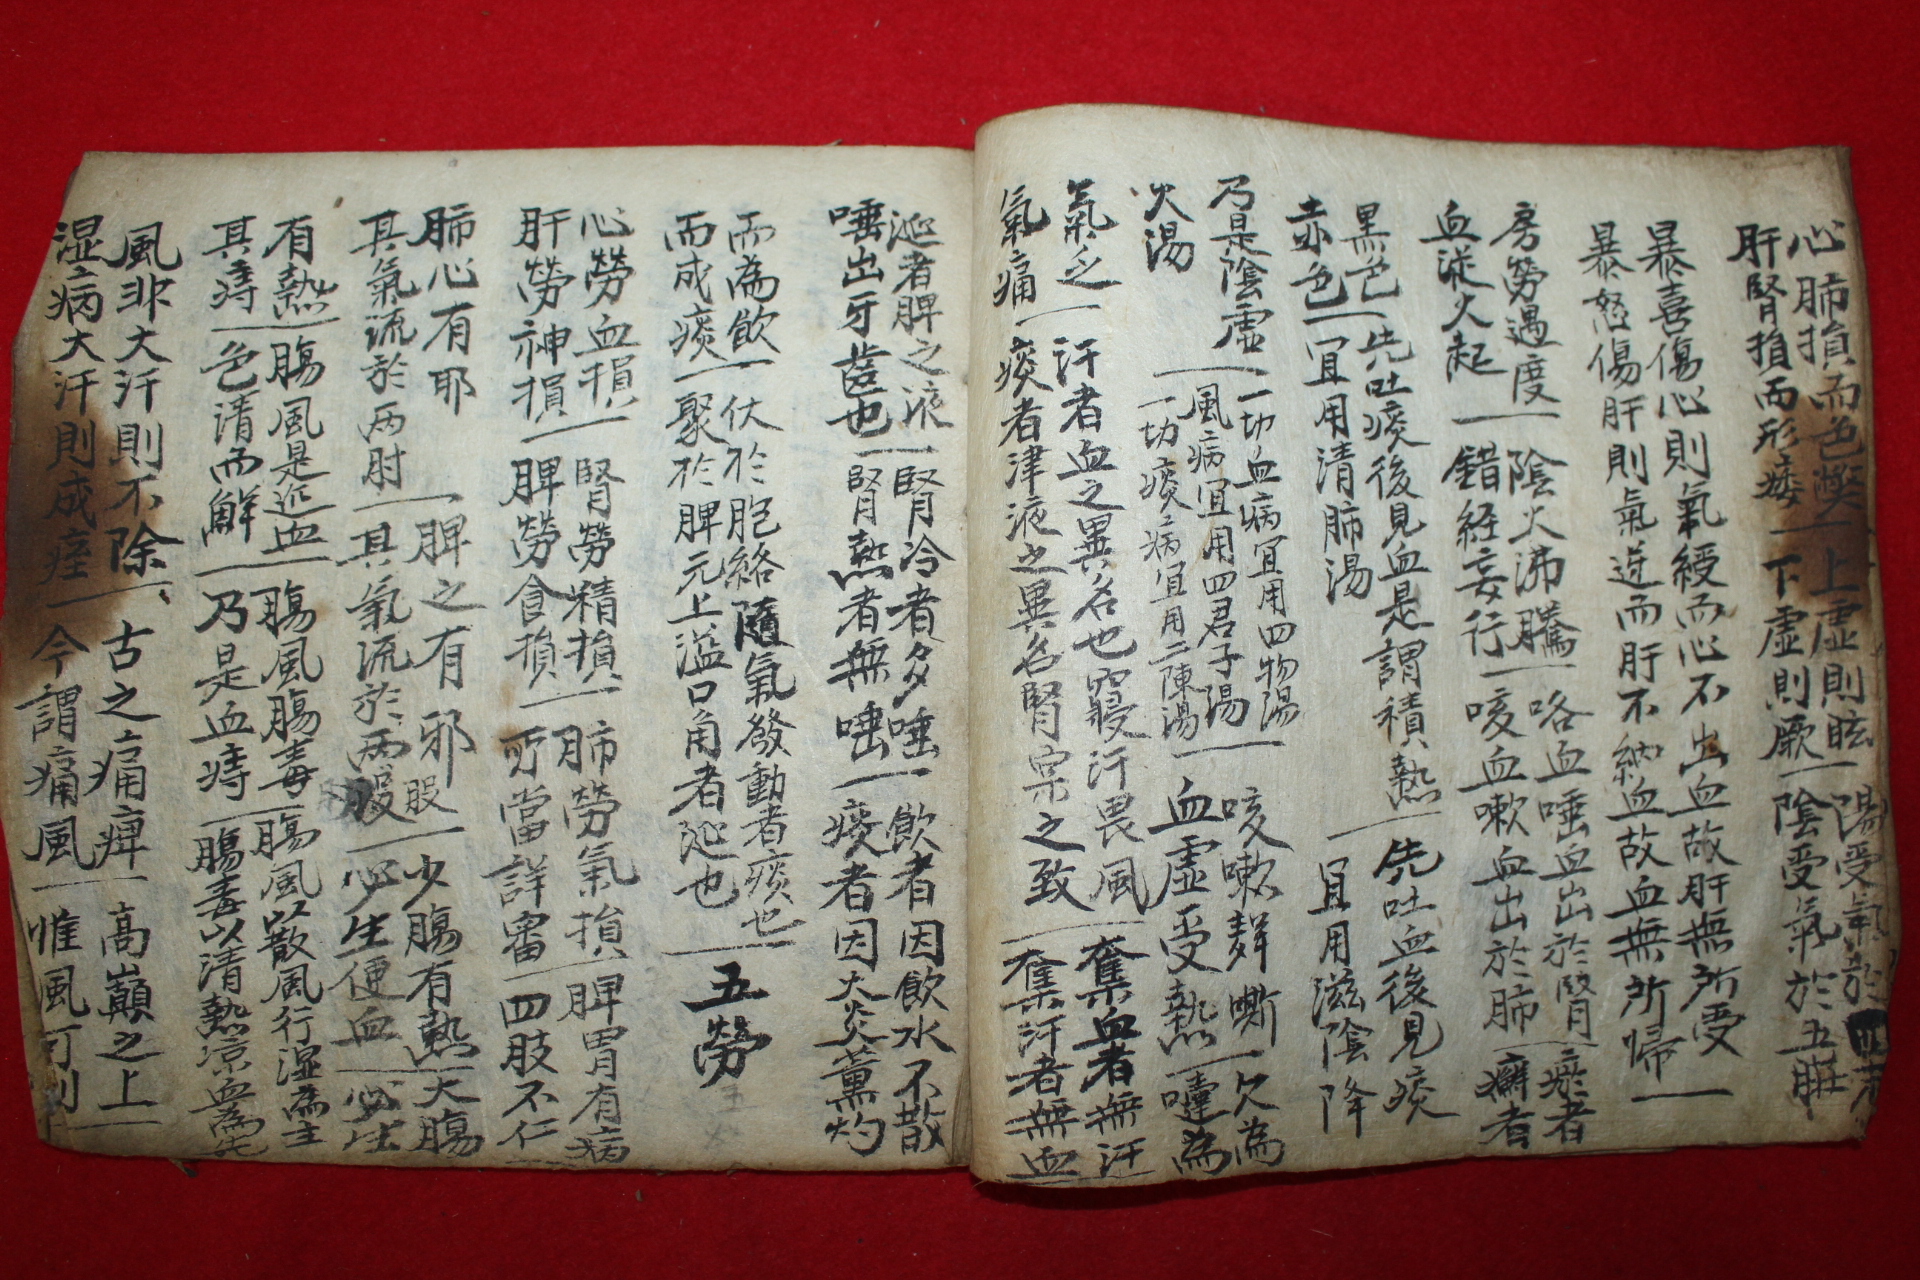 心肺損而色獘 上虛則眩 陽受氣於
肝腎損而形痿 下虛則厥 陰受氣於五臟
暴喜傷心則氣緩而心不出血故肝無所受
暴怒傷肝則氣逆而肝不納血故血無所歸
房勞過度 陰火沸騰 咯血唾血出於腎 瘀者
血從火起 錯経妄行 咳血嗽血出於肺 癬者
黒色 先吐痰後見血是謂積熱 先吐血後見痰
赤色 宜用清肺湯 宜用滋陰降
乃是陰虛 一切血病宜用四物湯 咳嗽聲嘶 欠為
風病宜用四君子湯
火湯 一切痰病宜用二陳湯 血虛受熱 噎為
氣乏 汗者血之異名也寢汗畏風 奪血者無汗
氣痛 痰者津液之異名腎宗之致 奪汗者無血
涎者脾之液 腎冷者多唾 飮者因飮水不散
唾出牙齒也 腎熱者無唾 痰者因火炎薰灼
而為飮 伏於胞絡隨氣發動者痰也
而成痰 聚於脾元上溢口角者涎也 五勞
心勞血損 腎勞精損 肺勞氣損 脾胃有病
肝勞神損 脾勞食損 所當詳審 四肢不仁
肺心有耶 脾之有邪 股 少膓有熱 大膓
其氣流於两肘 其氣流於两股 必生便血 必生
有熱 膓風是近血 膓風膓毒 膓風以散風行湿為主
其痔 色清而鮮 乃是血痔 膓毒以清熱凉血為先
風非大汗則不除 古之痛痺 高巔之上
湿病大汗則成痓 今謂痛風 惟風可到